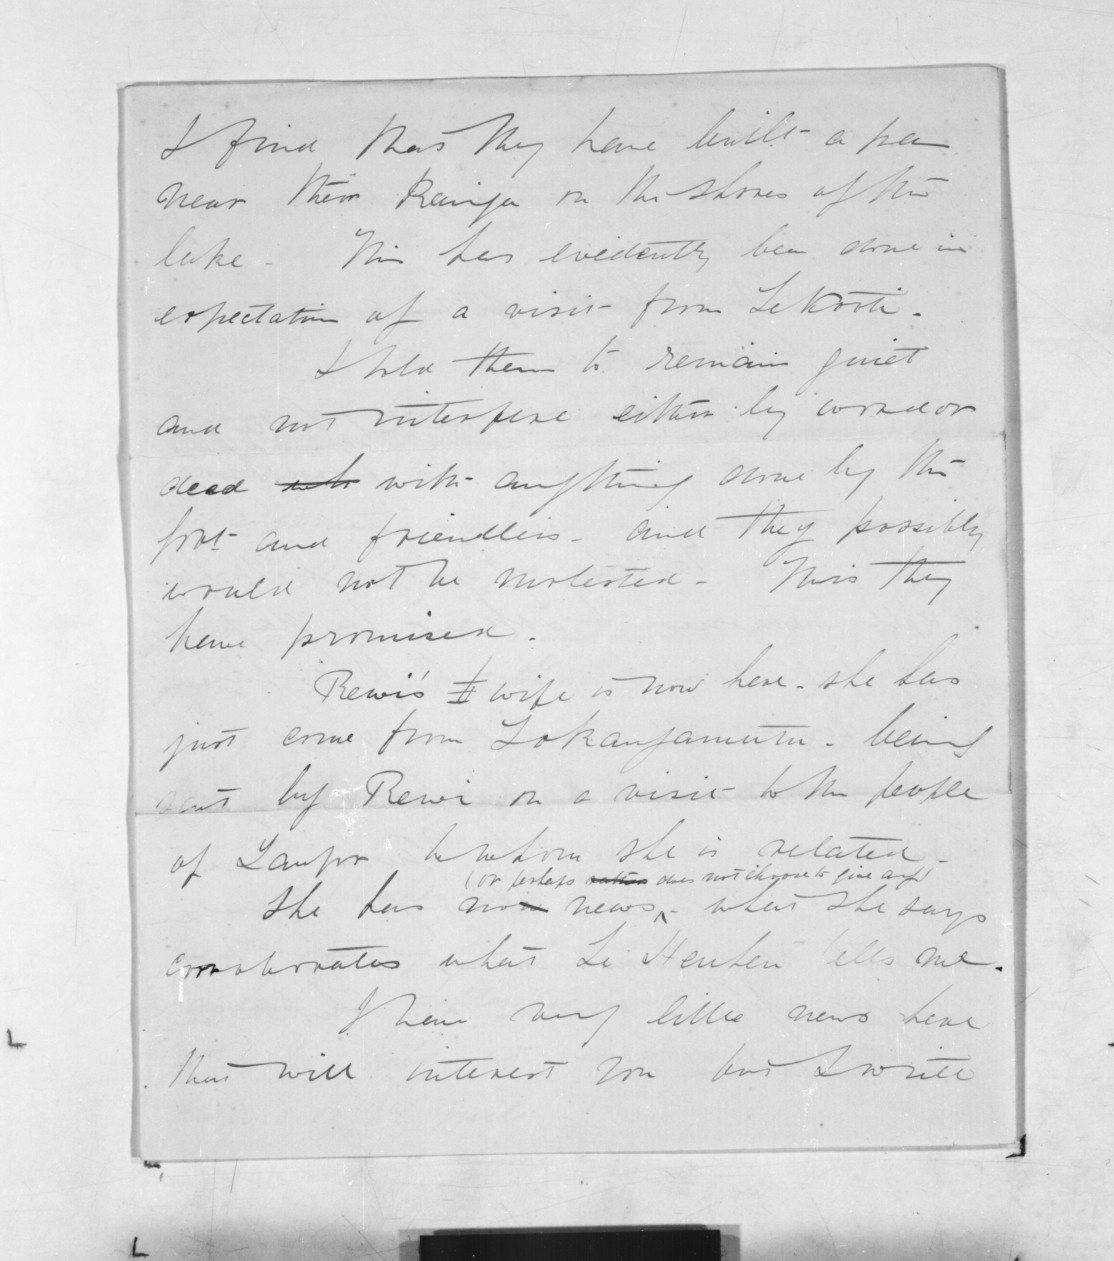 I find that they have built a pa
near their Kainga on the shores of the
lake - This has evidently been done in
expectation of a visit from Te Kooti.
I told them to remain quiet
and not interfere either by word or
deed with anything done by the
govt and friendlies - and they possibly
would not be molested - This they
have promised.
Rewi's II wife is now here - she has
just come from Tokangamutu - being
sent by Rewi on a visit to the people
of Taupo to whom she is related -
(or perhaps does not choose to give any)
She has no news - what she says
corroborates what Te Heuheu tells me.
I have very little news here
that will interest you but I write